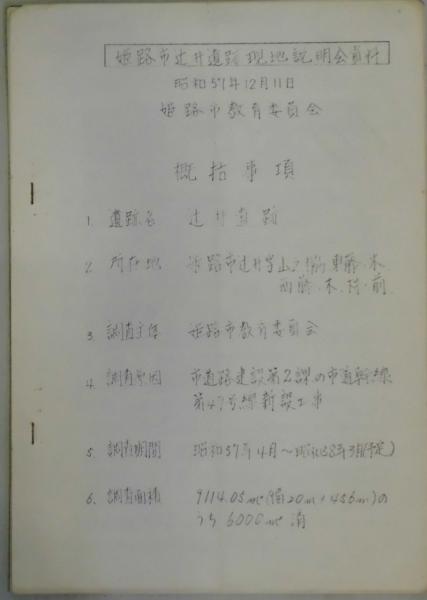 姫路市辻井遺跡現地説明会資料
昭和57年12月11日
姫路市教育委員会
概括事項
1. 遺跡名 辻井遺跡
2. 所在地 姫路市辻井字山之脇、東藤ノ木
西藤ノ木、前
3. 調査主体 姫路市教育委員会
4. 調査原因 市道路建設第2課の市道幹線
第47号線新設工事
5. 調査期間 昭和57年4月〜昭和58年3月(予定)
6. 調査面積 9114.05㎡(幅20m×456m)の
うち6000㎡済